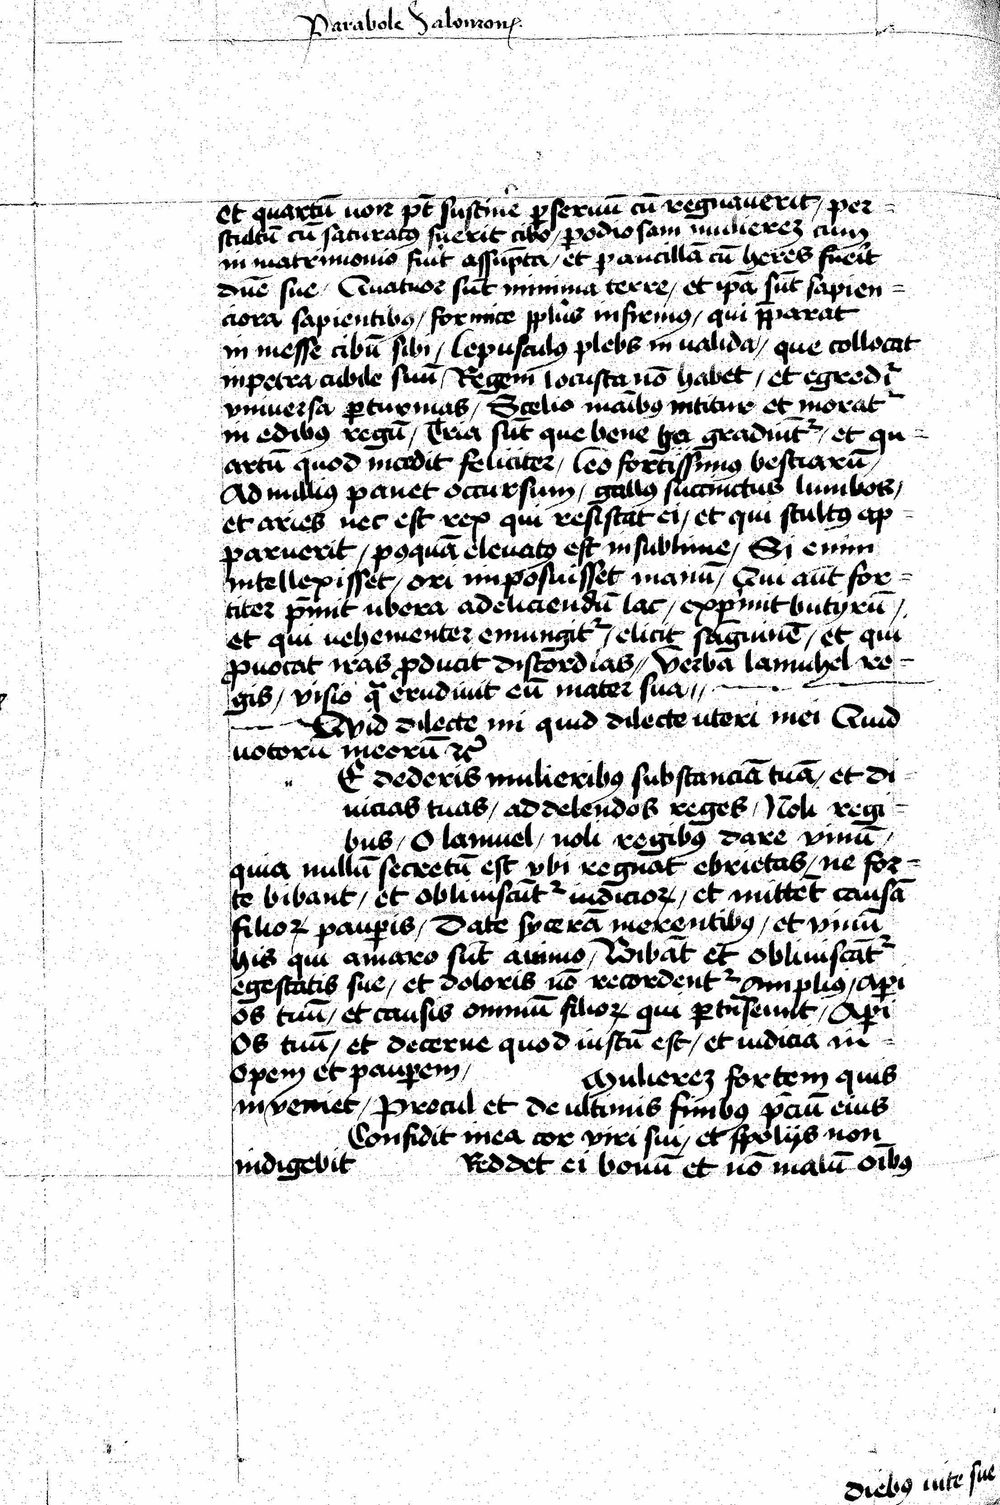 Parabole Salomonꝭ
et quartū non pōt sustine᷑ ꝑ seruū cū regnauerit / per =
stultū cū saturatꝰ fuerit cibo / ꝑ odiosam mulierez cum
in matrimonio fūit assūpta / et ꝑ ancillā cū heres fūeit
dn̄e sue / Quatuor sūt minima terre / et ip̄a sūt sapien =
ciora sapientibꝰ / formice pplūs infirmꝰ / qui p̄parat
in messe cibū sibi / lepusculꝰ plebs in valida / que collocat
in petra cubile suū / Regem locusta nō habet / et egredit᷑
vniuersa ꝑ turmas / Stelio maībꝰ intitur et morat᷑
in edibꝰ regū / Tria sūt que bene gradiūt᷑ / et qu =
artū quod incedit feliciter / leo fortissimꝰ bestiarū /
Ad nullius pauet occursum / gallꝰ succinctus lumbos /
et aries nec est rex qui resistat ei / et qui stultꝰ ap =
paruerit / pꝰquā eleuatꝰ est in sublime / Si enim
intellexisset / ori imposuisset manū / Qui aūt for =
titer p̄mit ubera ad eliciendū lac / exp̄mit butyrū /
et qui vehementer emungit᷑ / elicit sāguinē / et qui
ꝓuocat iras ꝓducit discordias // Verba lamuhel re =
gis / visio qᷓ erudiuit eū mater sua //
Quid dilecte mi quid dilecte uteri mei Quid
uotorū meorū ⁊c̄
E dederis mulieribꝰ substanciā tuā / et di =
uicias tuas / ad delendos reges / Noli regi =
bus / O lamuel / noli regibꝰ dare vinū /
quia nullū secretū est vbi regnat ebrietas / ne for =
te bibant / et obliuiscūt᷑ iudicioꝝ / et mittēt causā
filioꝝ pauꝑis / Date sycerā merentibꝰ / et vinū
his qui amaro sūt animo / Bibāt et obliuiscāt᷑
egestatis sue / et doloris nō recordent᷑ Amplius / Aꝑi
os tuū / et causis omniū filioꝝ qui ꝑtrāseunt / Aꝑi
Os tuū / et decerne quod iustū est / et iudicia in =
opem et pauꝑem / Mulierez fortem quis
inveniet / Procul et de ultimis finibꝰ p̄ciū eius
Confidit in ea cor viri sui / et spolijs non
indigebit Reddet ei bonū et nō malū oībꝰ
diebꝰ uite sue